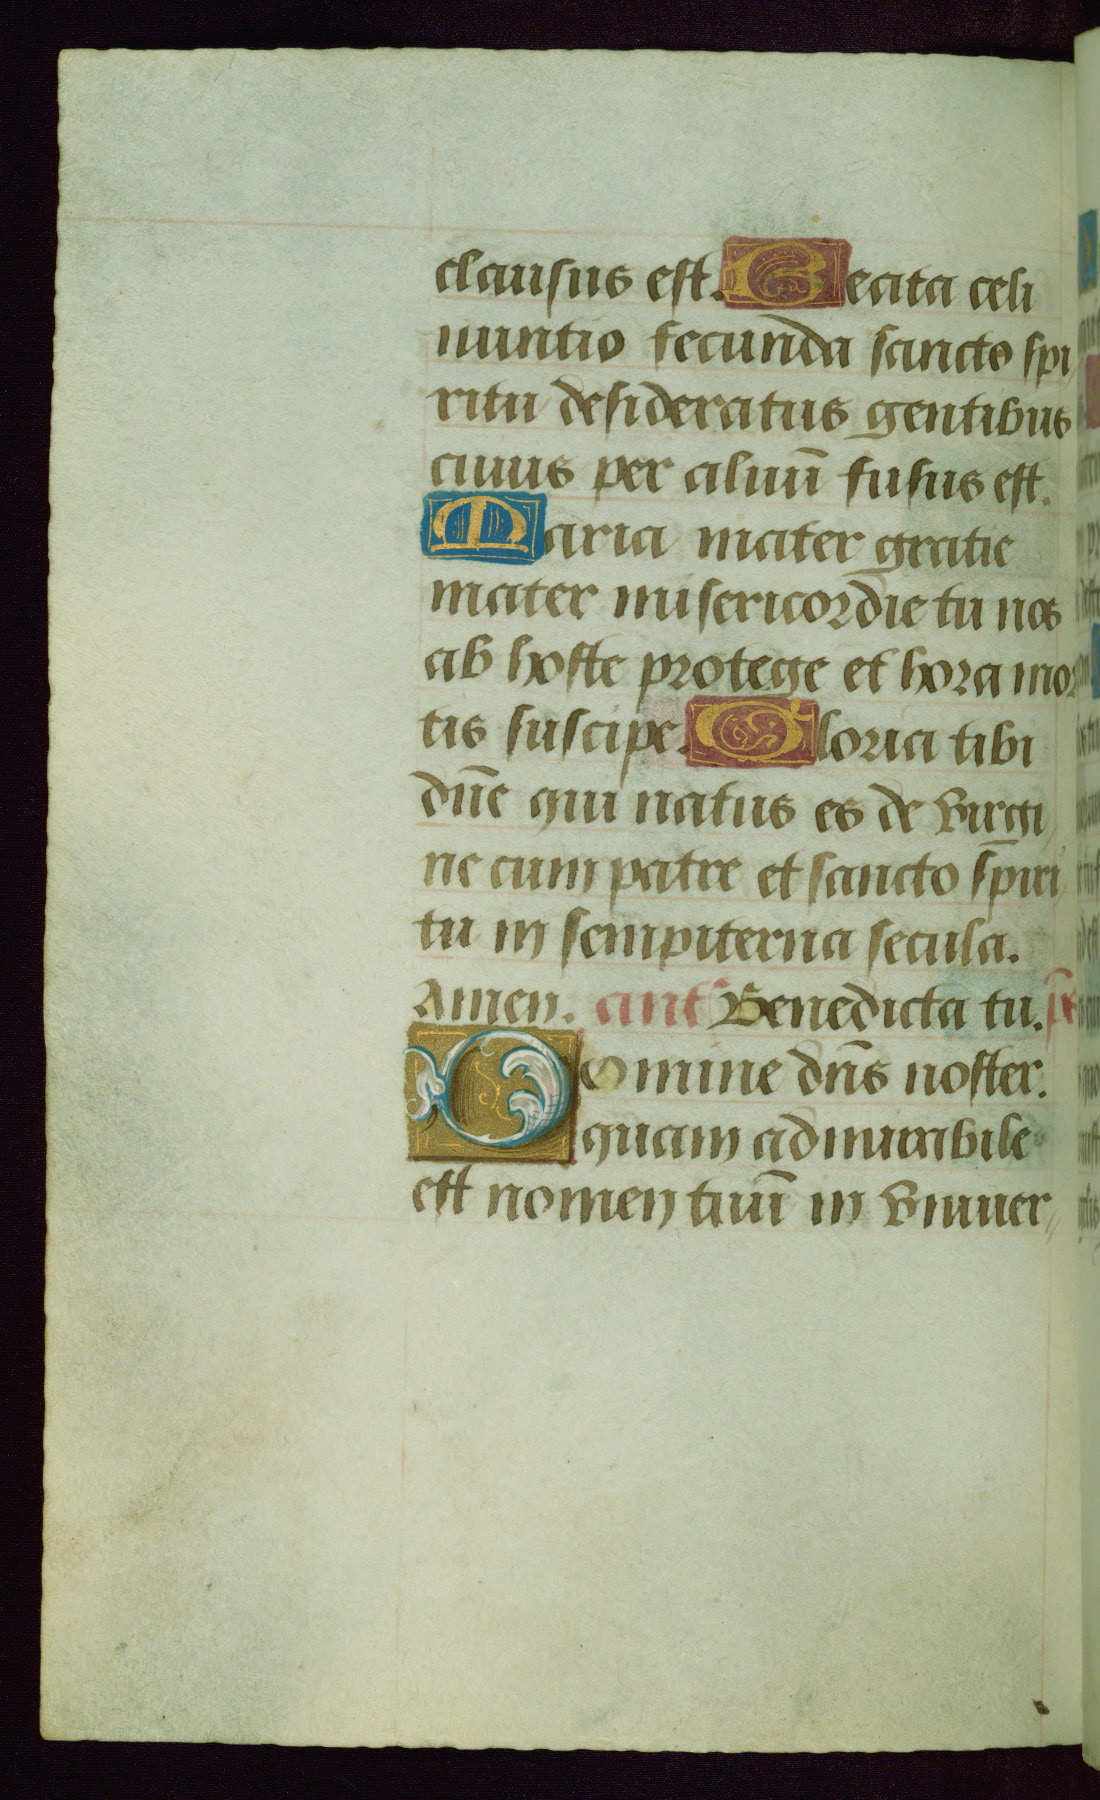 clausus est. Beata celi
nuntio fecunda sancto spi
ritu desideratus gentibus
cuius per aluū fusus est.
Maria mater gratie
mater misericordie tu nos
ab hoste protege et hora mor
tis suscipe. Gloria tibi
dn̄e qui natus es de virgi
ne cum patre et sancto sp̄iri
tu in sempiterna secula.
Amen. ant̄ Benedicta tu. ps̄
Domine dn̄s noster.
quam admirabile
est nomen tuū in vniuer